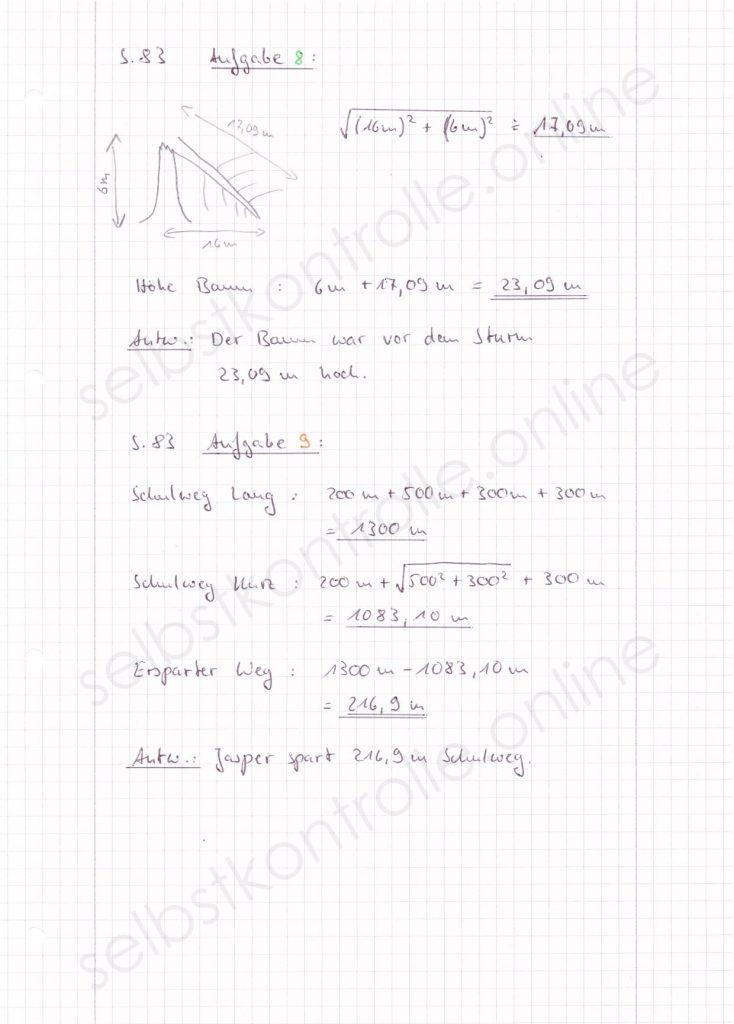 S. 83 Aufgabe 8:
17,09m
√(16m)² + (6m)² = 17,09m
6m
16m
Höhe Baum : 6m + 17,09 m = 23,09 m
Antw.: Der Baum war vor dem Sturm
23,09 m hoch.
S. 83 Aufgabe 9:
Schulweg Lang : 200 m + 500m + 300m + 300 m
= 1300 m
Schulweg Kurz : 200 m + √500² + 300² + 300 m
= 1083,10 m
Ersparter Weg : 1300 m - 1083,10 m
= 216,9 m
Antw.: Jasper spart 216,9 m Schulweg.
selbstkontrolle.online
selbstkontrolle.online
selbstkontrolle.online